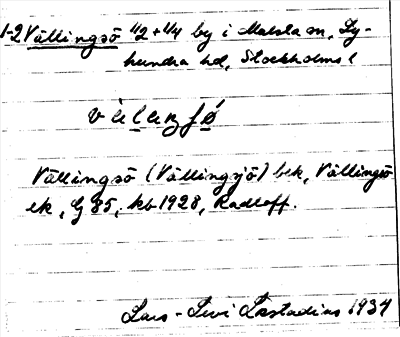 1-2 Vällingsö 1/2+1/4 by i Malsta sn, Ly-
hundra hd, Stockholms l
Vällingsö (Vällingsjö) bek, Vällingsö
ek, G 85, kb 1928, Radloff.
Lars-Levi Læstadius 1934